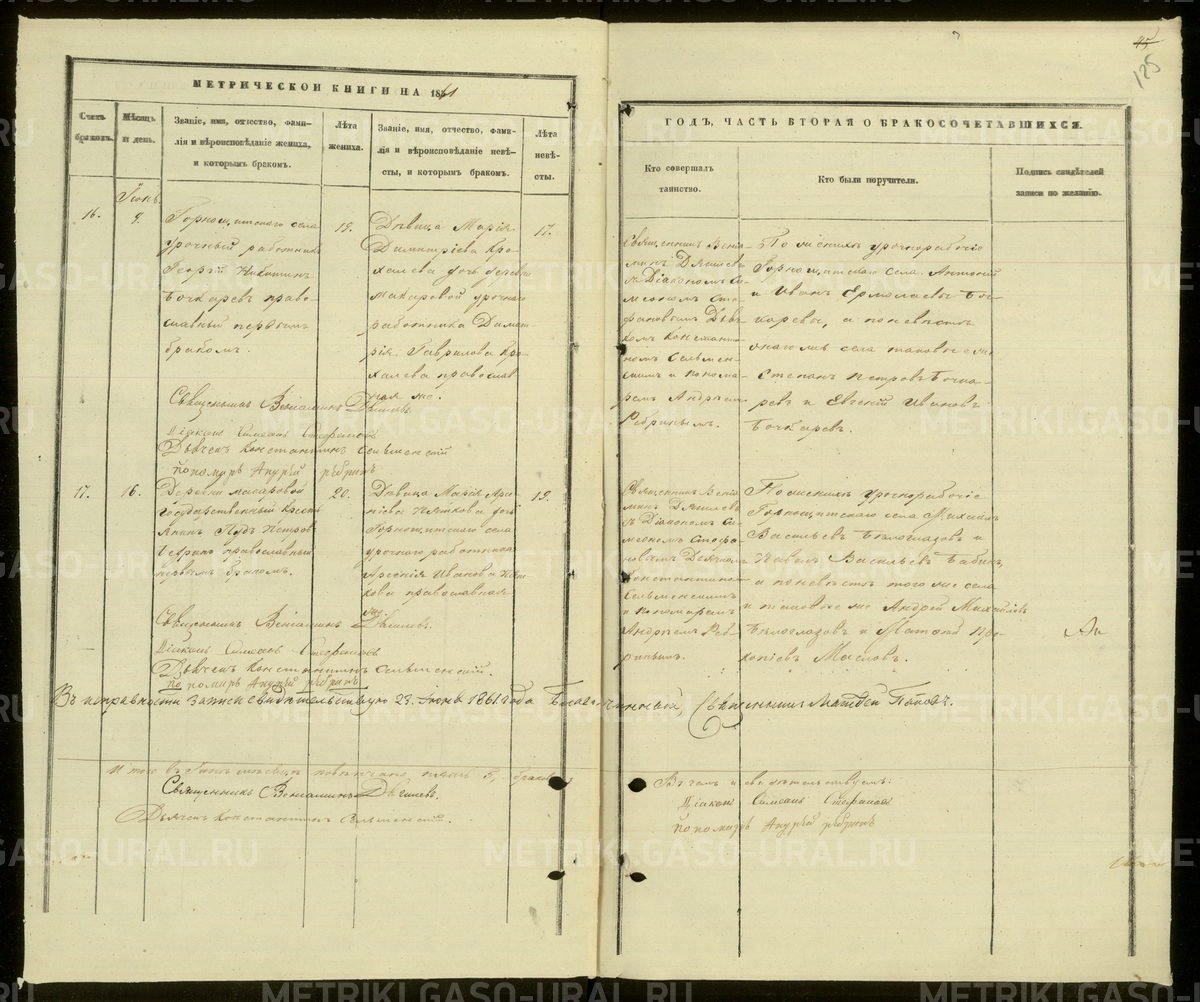 45
125
МЕТРИЧЕСКОЙ КНИГИ НА 1861
ГОДЪ, ЧАСТЬ ВТОРАЯ О БРАКОСОЧЕТАВШИХСЯ.
Счетъ браковъ.
Мѣсяцъ и день.
Званіе, имя, отчество, фами-
лія и вѣроисповѣданіе жениха,
и которымъ бракомъ.
Лѣта
жениха.
Званіе, имя, отчество, фами-
лія и вѣроисповѣданіе невѣ-
сты, и которымъ бракомъ.
Лѣта
невѣ-
сты.
Кто совершалъ
таинство.
Кто были поручители.
Подпись свидѣтелей
записи по желанію.
Іюнь
16.
9.
Горнощитскаго села
урочный работникъ
Георгій Никитинъ
Бочкаревъ право-
славный первымъ
бракомъ.
19.
Дѣвица Марія
Димитріева Кро-
халева дочь деревни
Макаровой урочнаго
работника Димит-
рія Гаврилова Кро-
халева православ
ная же.
17.
Священникъ Веніа-
минъ Дягилевъ
съ Діакономъ Си-
меономъ Сте-
фановымъ Дьяч-
комъ Константи-
номъ Сельмен-
скимъ и понома-
ремъ Андреемъ
Ребринымъ.
По женихѣ урочнорабочіе
Горнощитскаго села Антоній
и Иванъ Ермолаевы Боч-
каревы, а по невѣстѣ
онаго жъ села таковые же
Степанъ Петровъ Бочка-
ревъ и Евгеній Ивановъ
Бочкаревъ.
Священникъ Веніаминъ Дягилевъ
Діаконъ Симеонъ Стефановъ
Дьячекъ Константинъ Сельменскій
Пономарь Андрей Ребринъ
17.
16.
Деревни Макаровой
Государственный кресть
янинъ Іудъ Петровъ
православный
первымъ бракомъ.
20.
Дѣвица Марія Арсе-
ніева Пяткова дочь
Горнощитскаго села
урочнаго работника
Арсенія Иванова Пят-
кова православная
же.
19.
Священникъ Веніа
минъ Дягилевъ
съ Діакономъ Си-
меономъ Стефа-
новымъ Дьячкомъ
Константиномъ
Сельменскимъ
и Пономаремъ
Андреемъ Реб-
ринымъ.
По женихѣ урочнорабочіе
Горнощитскаго села Михаилъ
Васильевъ Бѣлоглазовъ и
Павелъ Васильевъ Бабинъ,
а по невѣстѣ того же села
и таковые же Андрей Михайловъ
Бѣлоглазовъ и Матвей Про-
копіевъ Масловъ.
Священникъ Веніаминъ Дягилевъ.
Діаконъ Симеонъ Стефановъ
Дьячекъ Константинъ Сельменскій.
Пономарь Андрей Ребринъ
Въ исправности записи свидѣтельствую 23. Іюня 1861 года Благочинный, Священникъ Матвей Поповъ.
Итого въ Іюнѣ мѣсяцѣ повѣнчано браковъ
Священникъ Веніаминъ Дягилевъ.
Дьячекъ Константинъ Сельменскій.
Въ чемъ и свидѣтельствуемъ:
Діаконъ Симеонъ Стефановъ
Пономарь Андрей Ребринъ
METRIKI.GASO-URAL.RU